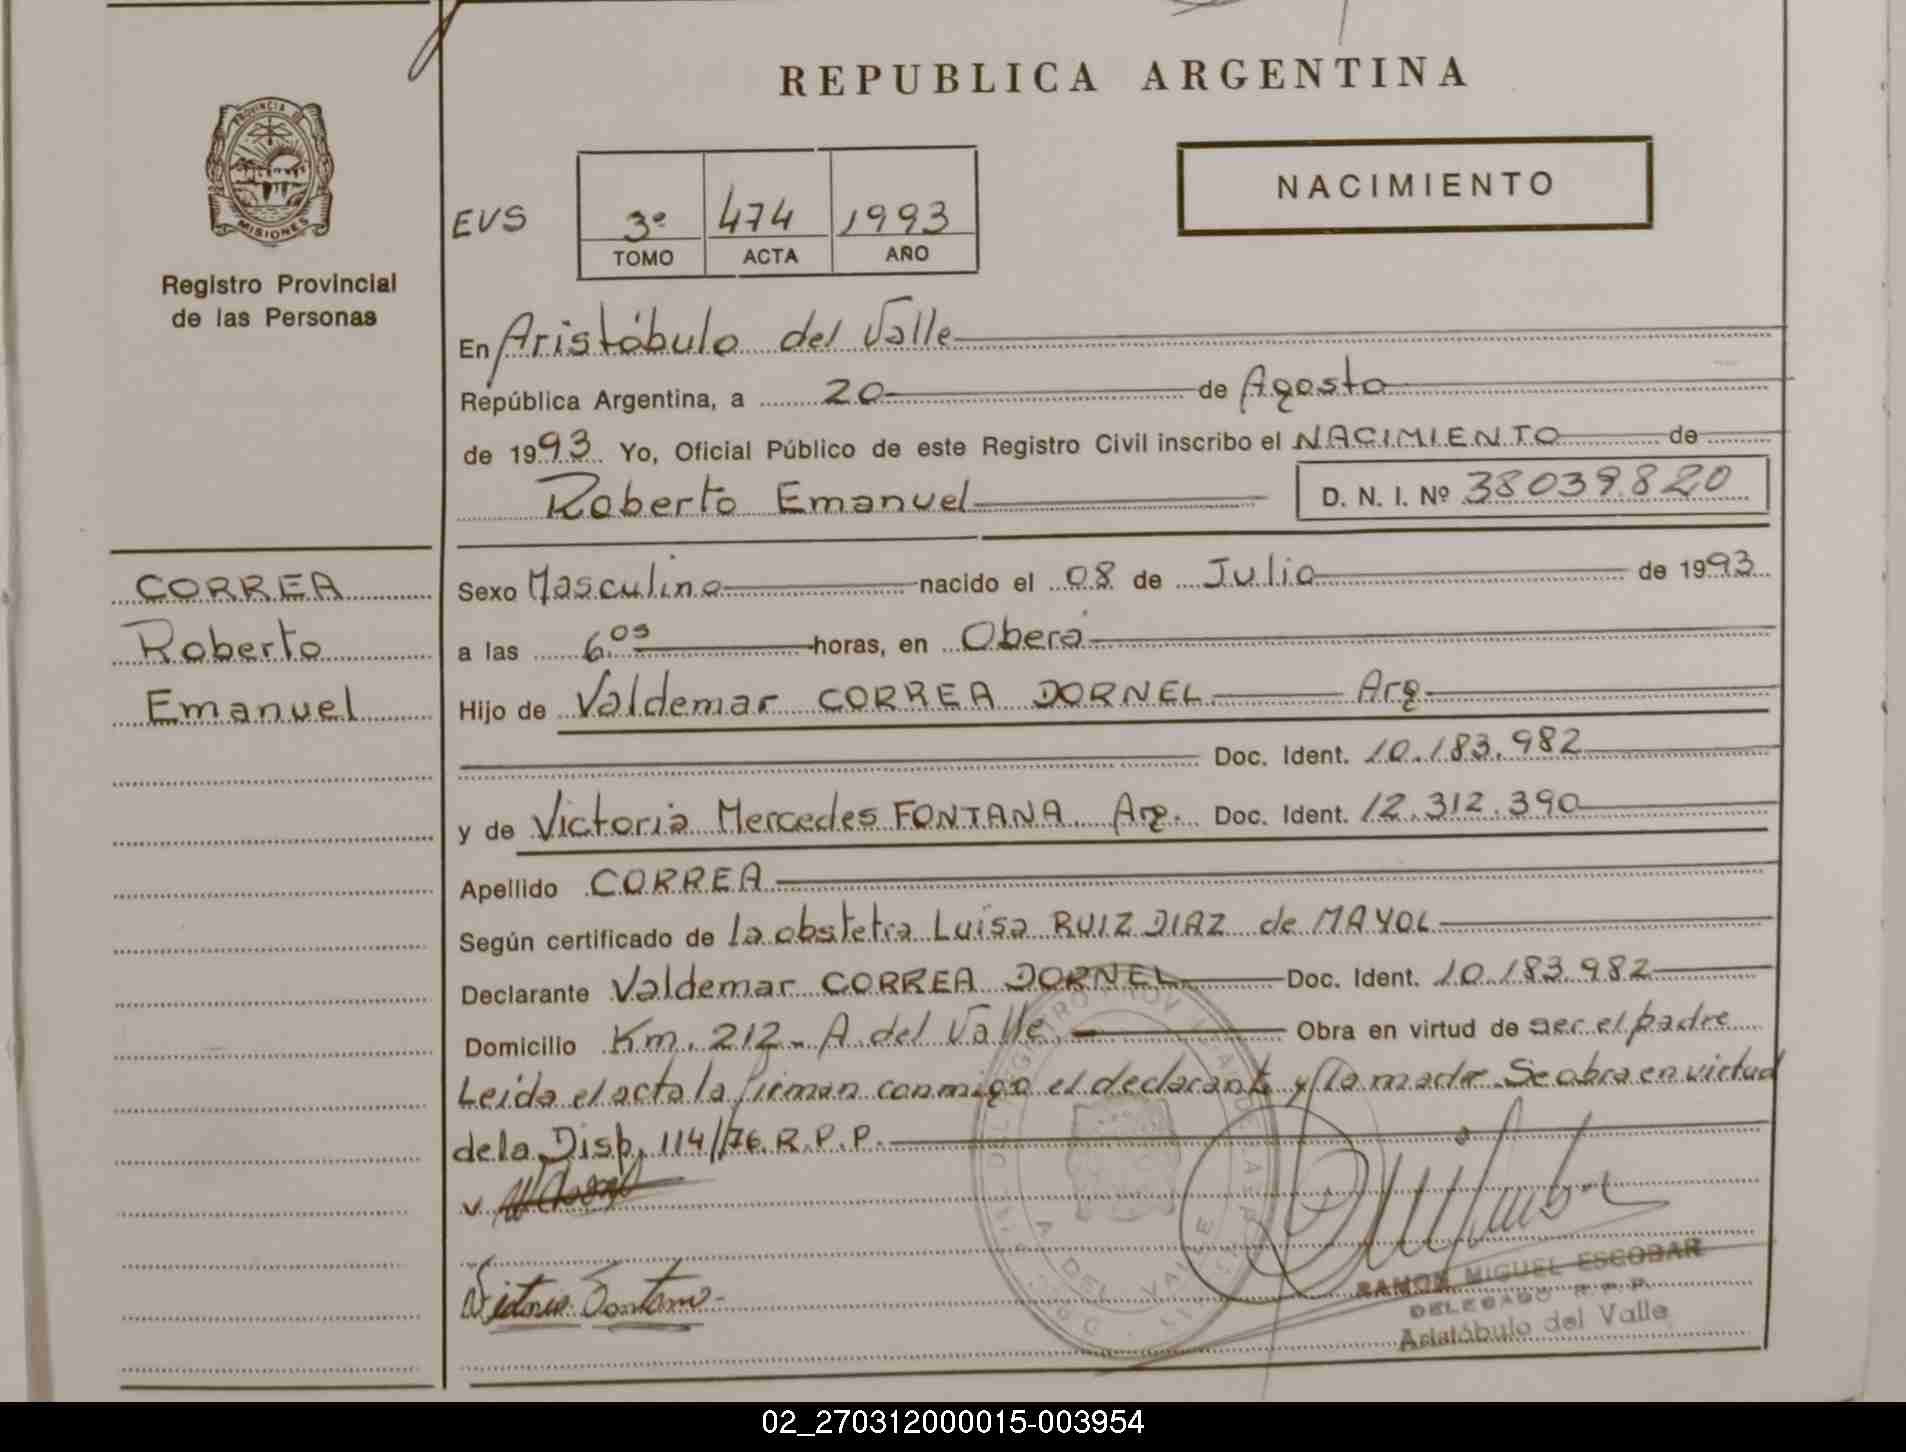 REPUBLICA ARGENTINA
PROVINCIA DE
MISIONES
Registro Provincial
de las Personas
EVS
3º 474 1993
TOMO ACTA AÑO
NACIMIENTO
En Aristóbulo del Valle
República Argentina, a 20 de Agosto
de 1993. Yo, Oficial Público de este Registro Civil inscribo el NACIMIENTO de
Roberto Emanuel D. N. I. Nº 38039820
CORREA
Roberto
Emanuel
Sexo Masculino nacido el 08 de Julio de 1993
a las 6 05 horas, en Oberá
Hijo de Valdemar CORREA DORNEL Arg.
Doc. Ident. 10.183.982
y de Victoria Mercedes FONTANA Arg. Doc. Ident. 12.312.390
Apellido CORREA
Según certificado de la obstetra Luisa RUIZ DIAZ de MAYOL
Declarante Valdemar CORREA DORNEL Doc. Ident. 10.183.982
Domicilio Km. 212- A. del Valle. Obra en virtud de ser el padre
Leida el acta la firman conmigo el declarante y la madre. Se obra en virtud
de la Disp. 114/76. R.P.P.
Victoria Fontana
RAMON MIGUEL ESCOBAR
DELEGADO R.P.P.
Aristóbulo del Valle
02_270312000015-003954